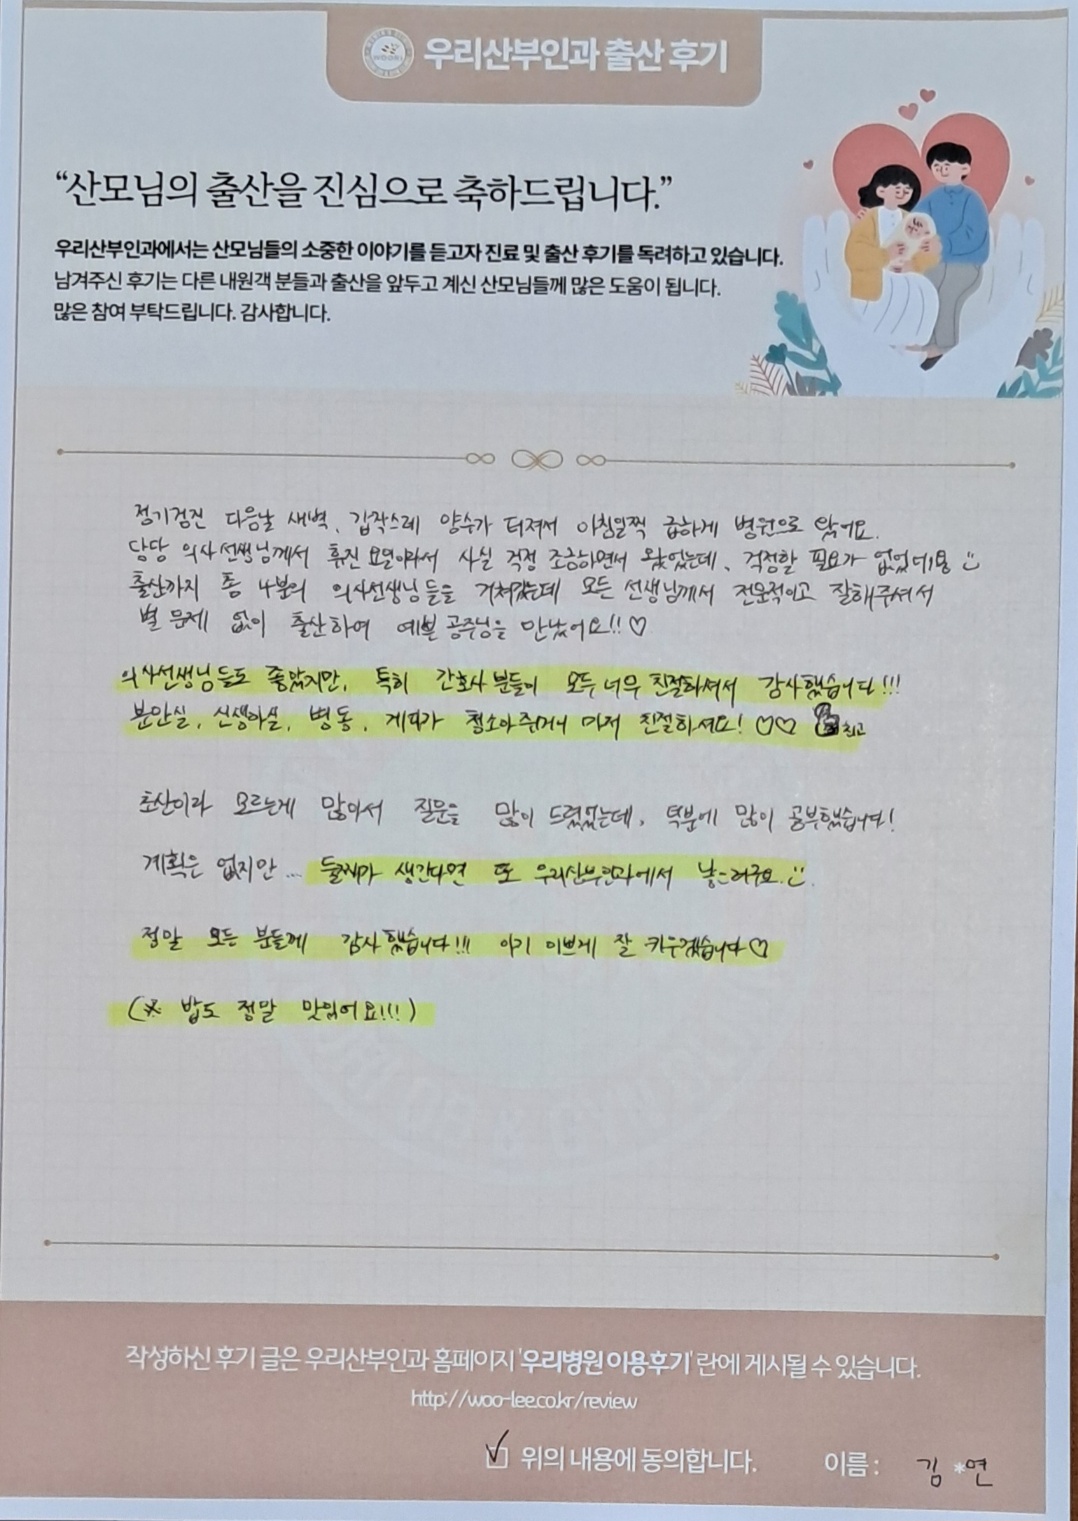 우리산부인과 출산 후기
“산모님의 출산을 진심으로 축하드립니다.”
우리산부인과에서는 산모님들의 소중한 이야기를 듣고자 진료 및 출산 후기를 독려하고 있습니다.
남겨주신 후기는 다른 내원객 분들과 출산을 앞두고 계신 산모님들께 많은 도움이 됩니다.
많은 참여 부탁드립니다. 감사합니다.
정기검진 다음날 새벽, 갑작스레 양수가 터져서 아침일찍 급하게 병원으로 왔어요.
담당 의사선생님께서 휴진 요일이라서 사실 걱정 조금하면서 왔었는데, 걱정할 필요가 없었네용
출산까지 총 4분의 의사선생님들을 거쳐갔는데 모든 선생님께서 전문적이고 잘해주셔서
별 문제 없이 출산하여 예쁜 공주님을 만났어요!! ♡
의사선생님들도 좋았지만, 특히 간호사 분들이 모두 너무 친절하셔서 감사했습니다!!!
분만실, 신생아실, 병동, 게다가 청소아주머니 마저 친절하세요! ♡♡ 최고
초산이라 모르는게 많아서 질문을 많이 드렸었는데, 덕분에 많이 공부했습니다!
계획은 없지만... 둘째가 생긴다면 또 우리산부인과에서 낳으려구요.
정말 모든 분들께 감사했습니다!!! 아기 이쁘게 잘 키우겠습니다♡
(※ 밥도 정말 맛있어요!!!)
작성하신 후기 글은 우리산부인과 홈페이지 '우리병원 이용후기' 란에 게시될 수 있습니다.
http://woo-lee.co.kr/review
위의 내용에 동의합니다. 이름 : 김*연